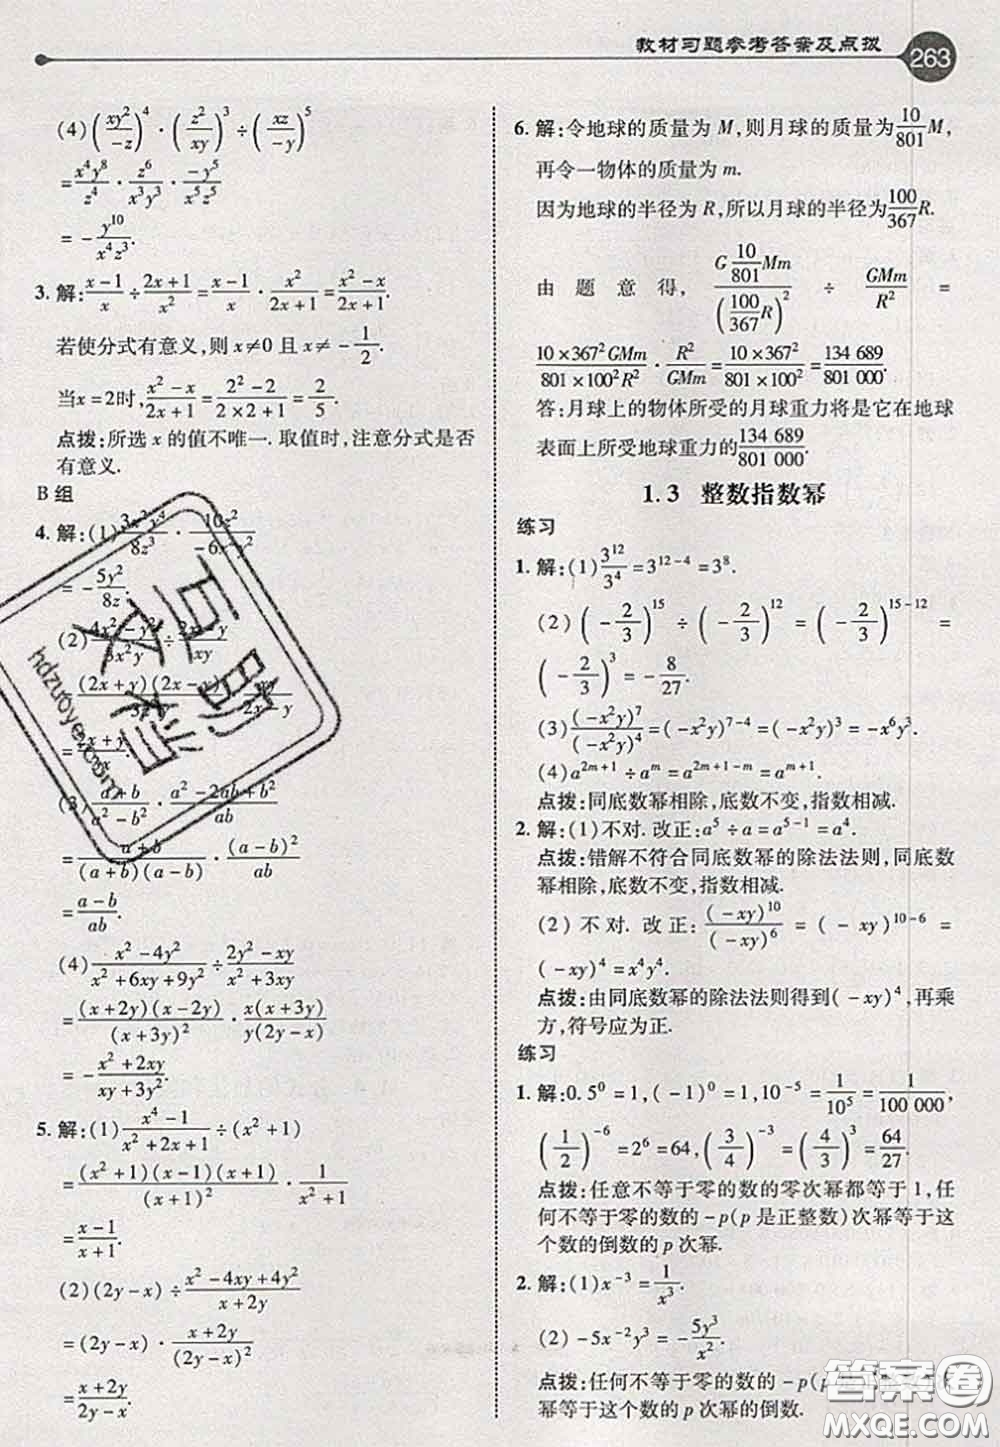 教材习题参考答案及点拨 263
(4)(xy²/−z)⁴·(z²/xy)³÷(xz/−y)⁵
=x⁴y⁸/z⁴·z⁶/x³y³·−y⁵/x⁵z⁵
=−y¹⁰/x⁴z³.
3. 解:(x−1)/x÷(2x+1)/x²=(x−1)/x·x²/(2x+1)=(x²−x)/(2x+1).
若使分式有意义,则 x≠0 且 x≠−1/2.
当x=2时,(x²−x)/(2x+1)=(2²−2)/(2×2+1)=2/5.
点拨:所选 x 的值不唯一. 取值时,注意分式是否
有意义.
B 组
4. 解:(1)3x²y⁴/8z³·10z²/−6x²y²
=−5y²/8z.
(2)(4x²−y²)/3x²y÷(2x−y)/xy
=(2x+y)(2x−y)/3x²y·xy/(2x−y)
=(2x+y)/3x.
(3)(a+b)/(a²−b²)·(a²−2ab+b²)/ab
=(a+b)/(a+b)(a−b)·(a−b)²/ab
=(a−b)/ab.
(4)(x²−4y²)/(x²+6xy+9y²)÷(2y²−xy)/(x²+3xy)
=(x+2y)(x−2y)/(x+3y)²·x(x+3y)/y(2y−x)
=−(x²+2xy)/(xy+3y²).
5. 解:(1)(x⁴−1)/(x²+2x+1)÷(x²+1)
=(x²+1)(x−1)(x+1)/(x+1)²·1/(x²+1)
=(x−1)/(x+1).
(2)(2y−x)÷(x²−4xy+4y²)/(x+2y)
=(2y−x)·(x+2y)/(2y−x)²
=(x+2y)/(2y−x).
6. 解:令地球的质量为 M,则月球的质量为10/801M,
再令一物体的质量为 m.
因为地球的半径为 R,所以月球的半径为100/367R.
由题意得,(G10/801Mm)/(100/367R)²÷GMm/R²=
10×367²GMm/801×100²R²·R²/GMm=10×367²/801×100²=134 689/801 000.
答:月球上的物体所受的月球重力将是它在地球
表面上所受地球重力的134 689/801 000.
1.3 整数指数幂
练习
1. 解:(1)3¹²/3⁴=3¹²⁻⁴=3⁸.
(2)(−2/3)¹⁵÷(−2/3)¹²=(−2/3)¹⁵⁻¹²=
(−2/3)³=−8/27.
(3)(−x²y)⁷/(−x²y)⁴=(−x²y)⁷⁻⁴=(−x²y)³=−x⁶y³.
(4)a²ᵐ⁺¹÷aᵐ=a²ᵐ⁺¹⁻ᵐ=aᵐ⁺¹.
点拨:同底数幂相除,底数不变,指数相减.
2. 解:(1)不对. 改正:a⁵÷a=a⁵⁻¹=a⁴.
点拨:错解不符合同底数幂的除法法则,同底数
幂相除,底数不变,指数相减.
(2)不对. 改正:(−xy)¹⁰/(−xy)⁶=(−xy)¹⁰⁻⁶=
(−xy)⁴=x⁴y⁴.
点拨:由同底数幂的除法法则得到(−xy)⁴,再乘
方,符号应为正.
练习
1. 解:0.5⁰=1,(−1)⁰=1,10⁻⁵=1/10⁵=1/100 000,
(1/2)⁻⁶=2⁶=64,(3/4)⁻³=(4/3)³=64/27.
点拨:任意不等于零的数的零次幂都等于1,任
何不等于零的数的−p(p 是正整数)次幂等于这
个数的倒数的 p 次幂.
2. 解:(1)x⁻³=1/x³.
(2)−5x⁻²y³=−5y³/x².
点拨:任何不等于零的数的−p(p
幂等于这个数的 p 次幂的倒数.
互助文档
hdzuoye.com
答案圈
MXQE.COM